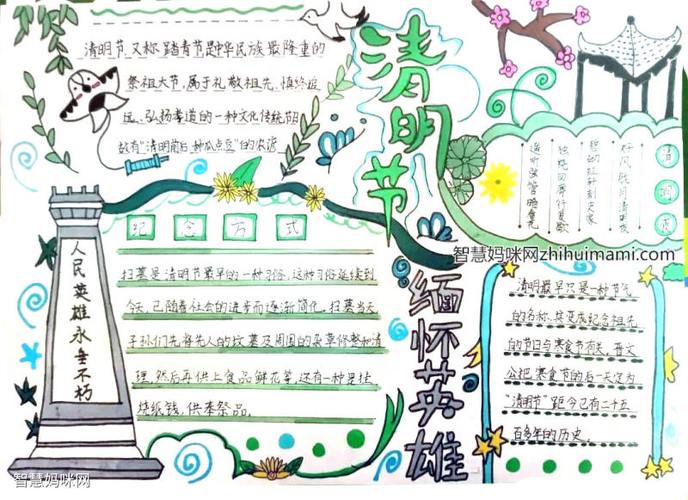 清明节,又称踏青节,是中华民族最隆重的
祭祖大节,属于礼敬祖先、慎终追
远、弘扬孝道的一种文化传统节日
故有"清明前后,种瓜点豆"的农谚
清明节
清明夜
好风胧月清明夜
碧砌红轩刺史家
独绕回廊行复歇
遥听弦管暗看花
智慧妈咪网zhihuimami.com
纪念方式
扫墓是清明节最早的一种习俗,这种习俗延续到
今天,已随着社会的进步而逐渐简化,扫墓当天
子孙们先将先人的坟墓及周围的杂草修整和清
理,然后再供上食品鲜花等,还有一种是挂
烧纸钱,供奉祭品。
人民英雄永垂不朽
缅怀英雄
清明最早只是一种节气
的名称,其变成纪念祖先
的节日与寒食节有关,晋文
公把寒食节的后一天定为
"清明节",距今已有二千五
百多年的历史。
智慧妈咪网